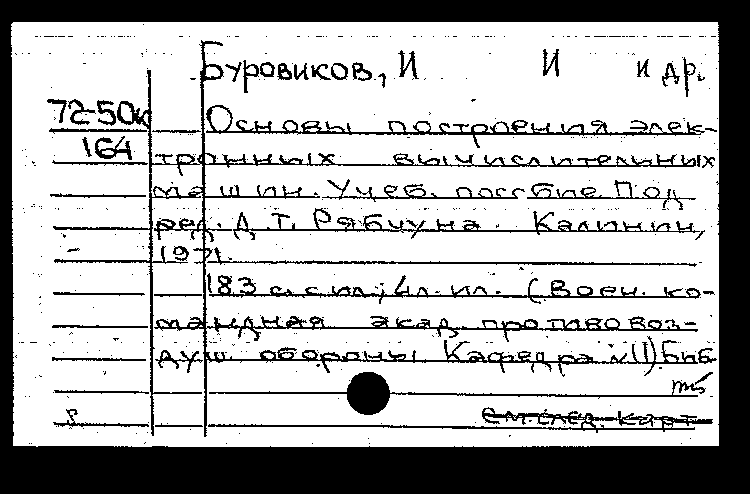 Буровиков, И И и др.
72-50к Основы построения элек-
164 тронных вычислительных
машин. Учеб. пособие. Под
ред. Д. Т. Рябчуна. Калинин,
1971.
183 с. с ил; 4л. ил. (Воен. ко-
мандная акад. противовоз-
душ. обороны. Кафедра №11) Биб
см. след. карт